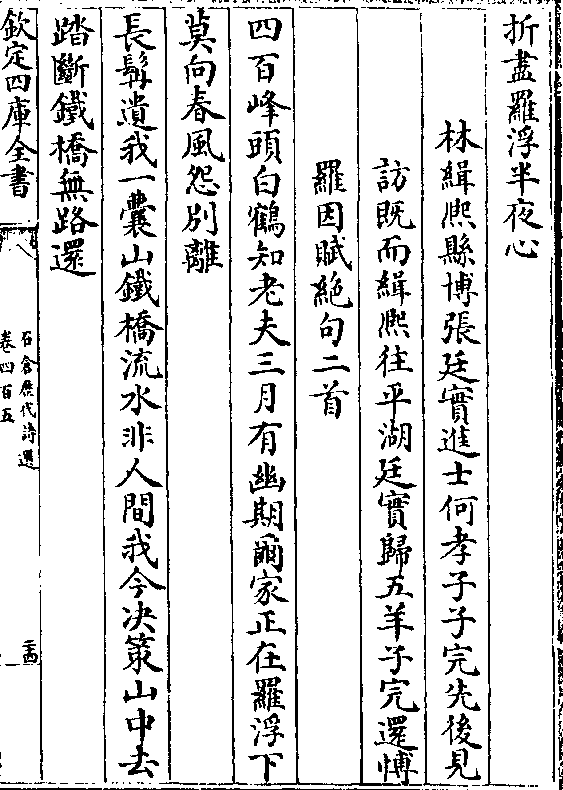 折盡羅浮半夜心
林緝熙縣博張廷實進士何孝子子完先後見
訪既而緝熙往平湖廷實歸五羊子完還博
羅因賦絶句二首
四百峰頭白鶴知老夫三月有幽期爾家正在羅浮下
莫向春風怨別離
長髯遺我一囊山鐵橋流水非人間我今决策山中去
踏斷鐵橋無路還
欽定四庫全書
石倉歴代詩選
卷四百五
二十四